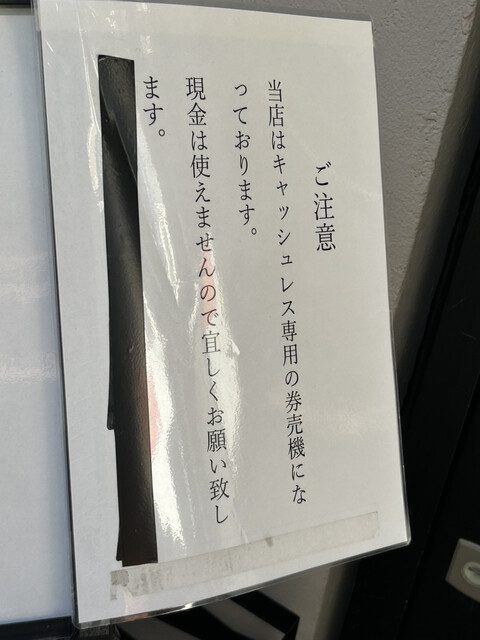 ご注意
当店はキャッシュレス専用の券売機にな
っております。
現金は使えませんので宜しくお願い致し
ます。